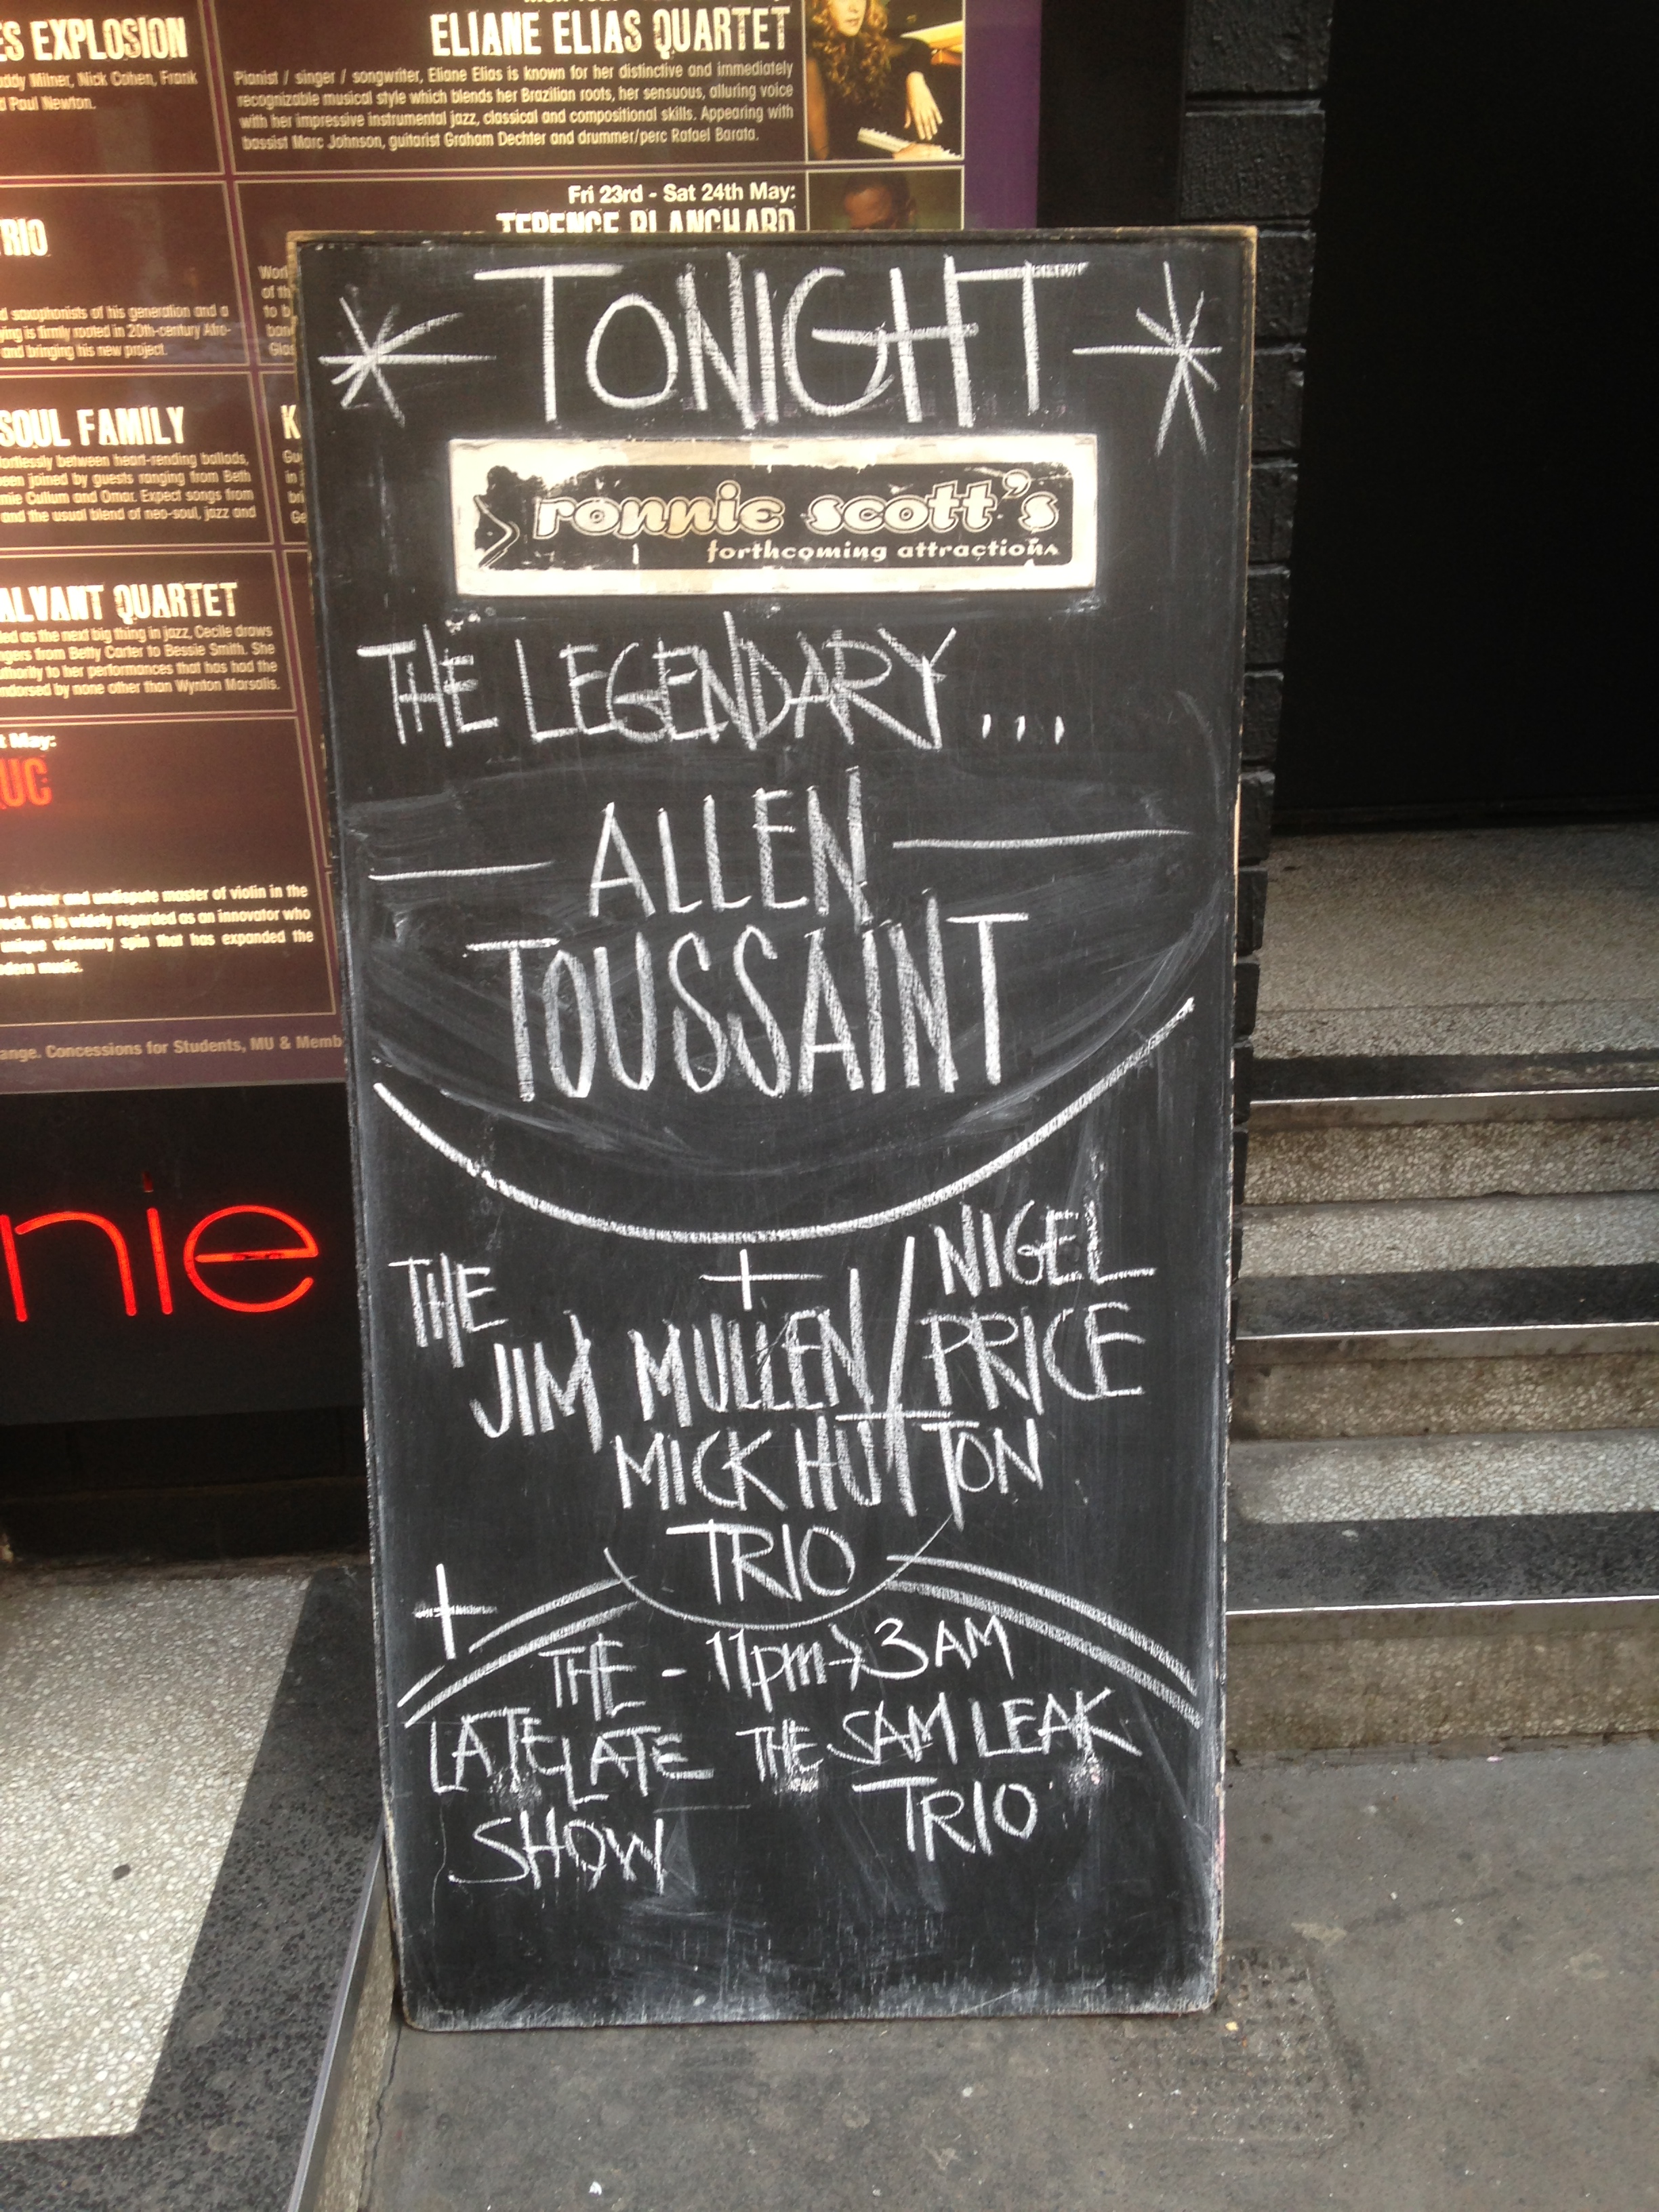 ES EXPLOSION
addy Milner, Nick Cohen, Frank
d Paul Newton.
ELIANE ELIAS QUARTET
Pianist / singer / songwriter, Eliane Elias is known for her distinctive and immediately
recognizable musical style which blends her Brazilian roots, her sensuous, alluring voice
with her impressive instrumental jazz, classical and compositional skills. Appearing with
bassist Marc Johnson, guitarist Graham Dechter and drummer/perc Rafael Barata.
Fri 23rd - Sat 24th May:
TERENCE BLANCHARD
RIO
d saxophonists of his generation and a
ying is firmly rooted in 20th-century Afro-
and bringing his new project.
SOUL FAMILY
fortlessly between heart-rending ballads,
een joined by guests ranging from Beth
mie Cullum and Omar. Expect songs from
and the usual blend of neo-soul, jazz and
ALVANT QUARTET
led as the next big thing in jazz, Cecile draws
ngers from Betty Carter to Bessie Smith. She
uthority to her performances that has had the
endorsed by none other than Wynton Marsalis.
t May:
UC
pioneer and undispute master of violin in the
rock. He is widely regarded as an innovator who
unique visionary spin that has expanded the
odern music.
ange. Concessions for Students, MU & Memb
nie
TONIGHT
ronnie scott's
forthcoming attractions
THE LEGENDARY...
ALLEN
TOUSSAINT
+
THE JIM MULLEN / NIGEL PRICE
MICK HUTTON
TRIO
+
THE - 11pm → 3AM
LATE LATE THE SAM LEAK
SHOW TRIO